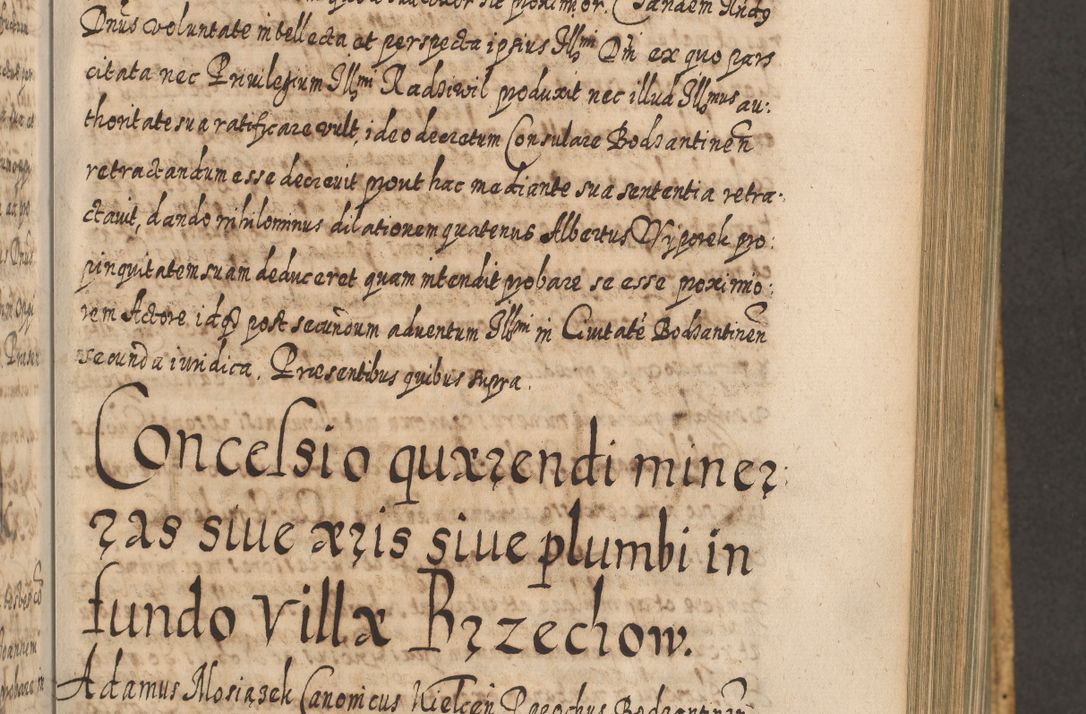 proximior. Tandem Andq
Dnus voluntate intellecta et perspecta ipsius Illmi Dni ex quo pars
citata nec Privilegium Illmi Radziwil produxit nec illud Illmus au:
thoritate sua ratificare vult, ideo decretum Consulare Bodzantinen
retractandum esse decrevit prout hac mediante sua sententia retra:
ctavit, dando nihilominus dilationem quatenus Albertus Wyporek pro:
pinquitatem suam deduceret quam intendit probare se esse proximio:
rem Actore idq post secundum adventum Illmi in Civitate Bodzantinen
secunda iuridica. Præsentibus quibus supra.
Concessio quærendi mine:
ras sive æris sive plumbi in
fundo Villæ Brzechow.
Adamus Mosiązek Canonicus Kielcen Parochus Bodzantinen